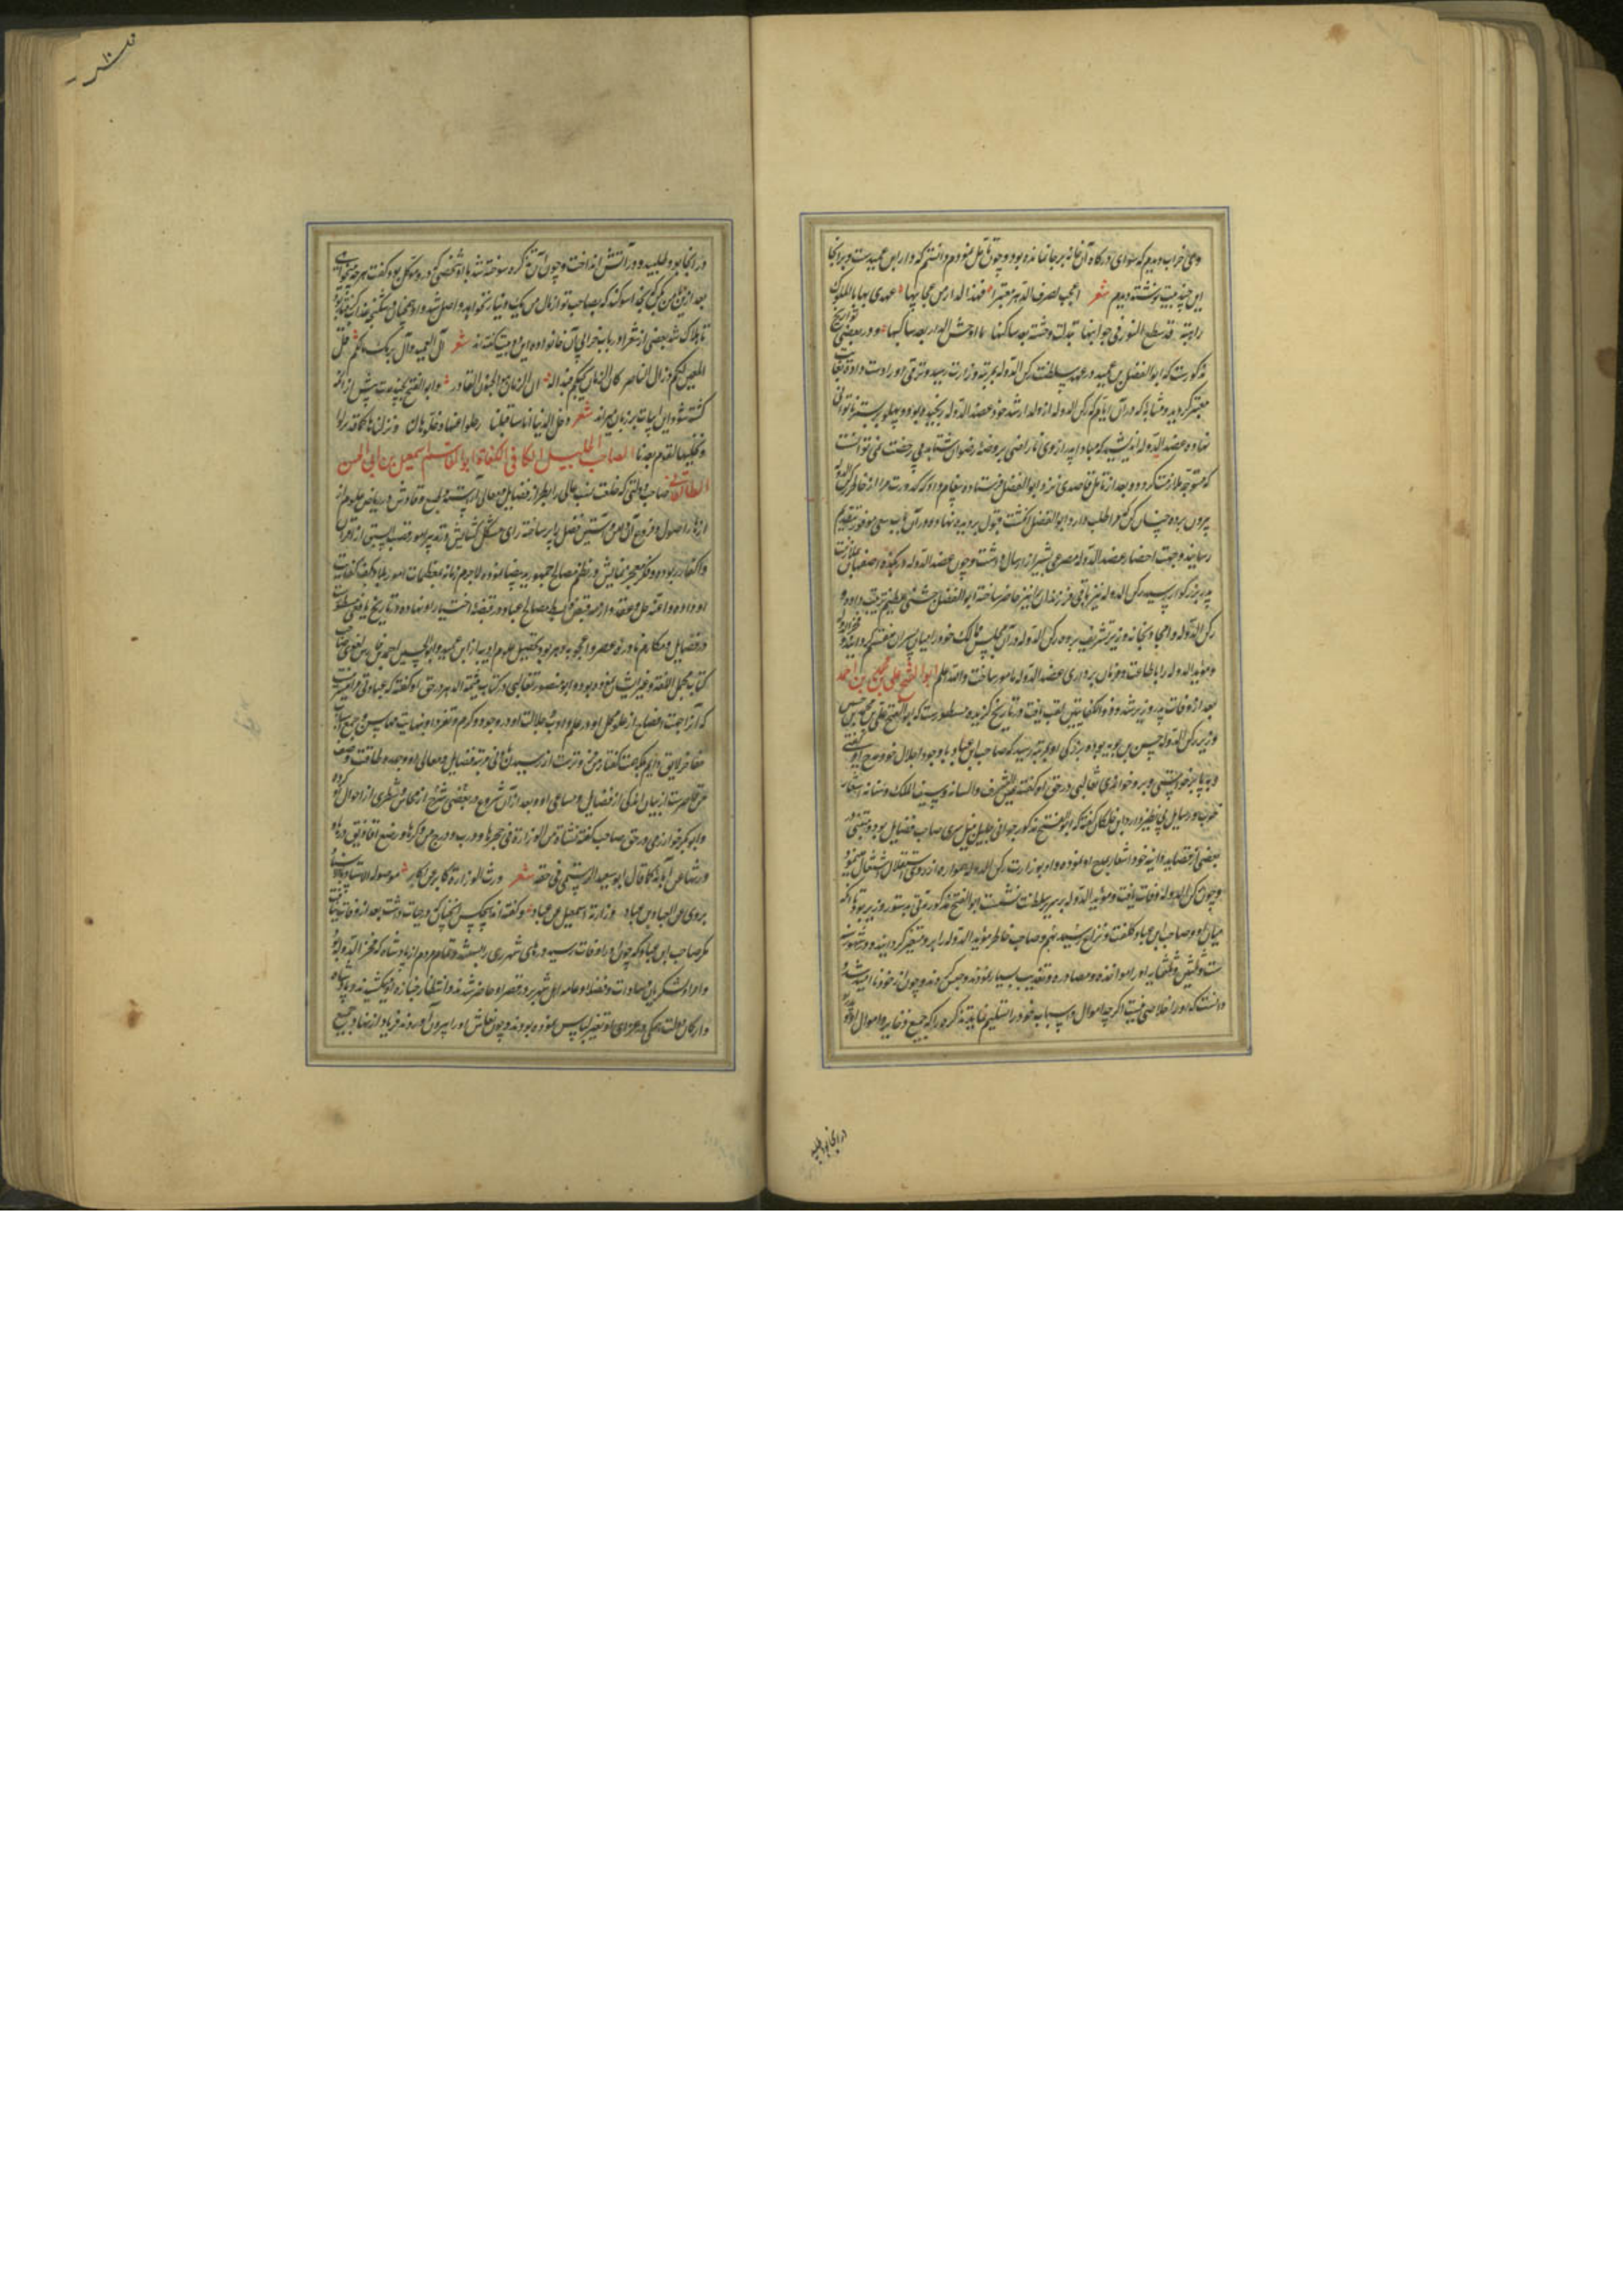 وهمی خراب دیدم که سوای درگاه آن خانه بر جا نمانده بود و چون تأمل نمودم دانستم که دار ابن عمیدست و بر آنجا
این چند بیت نوشته دیدم شعر اعجب لصرف الدهر معتبرا فهذا الدار من عجایبها عهدی بها بالملوک
قد سطع النور فی جوانبها تبدلت وحشة بعد ساکنها ما اوحش الدار بعد ساکنها و در بعضی تواریخ
مذکورست که ابوالفضل بن عمید در عهد سلطنت رکن الدوله بمرتبه وزارت رسید و ترقی او را دست داد
معتبر گردید در آن ایام که رکن الدوله از ولد ارشد خود عضد الدوله رنجیده بود و پهلو بر بستر ناتوانی
نهاده عضد الدوله اندیشید که مبادا پدر از وی ناراضی بروضه رضوان شتابد و بی رخصت نمی توانست
که متوجه ملازمت گردد و بعد از تأمل قاصدی نزد ابوالفضل فرستاد و پیغام داد که کدورت مرا از خاطر رکن الدوله
بیرون برده چنان کن که مرا طلب دارد ابوالفضل انگشت قبول بر دیده نهاده در آن باب سعی موفور بتقدیم
رسانید و جهت احضار عضد الدوله بشیراز ارسال داشت و چون عضد الدوله در بلده اصفهان بملازمت
پدر بزرگوار رسید رکن الدوله نیز باقی فرزندان را نیز حاضر ساخته ابوالفضل جشنی عظیم ترتیب داد و
رکن الدوله و امجاد بخانه وزیر تشریف برده رکن الدوله در آن مجلس ممالک خود را میان پسران منقسم گردانید و فخر الدوله
و مؤید الدوله را باطاعت و فرمان برداری عضد الدوله مامور ساخت والله اعلم ابوالفتح علی بن محمد بن احمد
بعد از وفات پدر وزیر شد و ذوالکفایتین لقب یافت در تاریخ گزیده مسطورست که ابوالفتح علی بن محمد بن حسین
وزیر رکن الدوله حسن بن بویه بود و بزرگی او بمرتبه رسید که صاحب ابن عباد با وجود اجلال خود مدح او گفتی
و بر پا برخواستی و بر او خواندی ثعالبی در حق او گفته
خوب و رسایل بی نظیر دارد ابن خلکان گفته که ابوالفتح مذکور جوانی جلیل نبیل سری صاحب فضایل بود و متنبی در
بعضی از قصاید دالیه خود اشعار بمدح او نموده و او بوزارت رکن الدوله همواره از روی استقلال اشتغال مینمود
و چون رکن الدوله وفات یافت و مؤید الدوله بر سریر سلطنت نشست ابوالفتح مذکور مدتی بدستور وزیر بود تا آنکه
میان او و صاحب ابن عباد کلفت و نزاع رسید هم و صاحب خاطر مؤید الدوله را بر او متغیر گردانید و در شهور سنه
ست و ستین و ثلثمایه او را مواخذه و مصادره و تعذیب بسیار نمودند و حبس کردند و چون از خود ناامید شد و
دانست که او را خلاصی نیست اگرچه اموال و اسباب خود را تسلیم نماید تذکره را که جمیع ذخایر و اموال او و پدر
در انجا بود طلبید
در انجا بود طلبید و در آتش انداخت و چون آن تذکره سوخته شد با شخصی که برو موکل بود گفت هرچه میخواهی
بعد ازین با من بکن که بخدا سوگند که بصاحب تو از مال من یک دینار نخواهد واصل شد و او همچنان در شکنجه عذاب کشید
تا هلاک شد بعضی از شعرا در باب خرابی آن خانواده این دو بیت گفته اند شعر آل العمید وآل برمک مالکم قل
المعین لکم وذل الناصر کان الزمان یحبکم فبدا له ان الزمان هو المحب الغادر و ابوالفتح بچند مدت پیش از آنکه
کشته شود این ابیات بر زبان میراند شعر دخل الدنیا اناس قبلنا رحلوا عنها وخلوها لنا ونزلناها کما قد نزلوا
ونخلیها لقوم بعدنا الصاحب الجلیل الکافی الکفاة ابوالقاسم اسمعیل بن ابی الحسن
الطالقانی صاحب دولتی که خلعت نسب عالی را بطراز فضایل و معالی آراسته و طبع وقادش در ریاض علوم از
ازهار اصول و فروع آن دامن و آستین فضل را پر ساخته رای مشکل گشایش در تدبیر امور قصب السبق از اقران
و اکفا در ربوده و فکر معجز نمایش در نظم مصالح جمهور ید بیضا نموده لاجرم زمانه معظمات امور بلاد بکف کفایت
او داده و اعنه حل و عقد و ازمه قبض و بسط مصالح عباد در قبضه اختیار او نهاده در تاریخ یافعی مسطورست
در فضایل و مکارم نادره عصر و اعجوبه دهر بود تحصیل علوم ادبیه از ابن عمید و ابوالحسین احمد بن فارس لغوی صاحب
کتاب مجمل اللغة و غیر ایشان نموده بوده ابو منصور ثعالبی در کتاب یتیمة الدهر در حق او گفته که عبارتی مرا میسر نیست
که آنرا جهت افصاح از علو محل او در علم و ادب و جلالت او در جود و کرم و تفرد او بنهایت محاسن و جمع اشتات
مفاخر لایق دانم چه همت گفتار من فروترست از رسیدن بادنی مرتبه فضایل و معالی او و جهد و طاقت وصف
من قاصرست از بیان اندکی از فضایل و مساعی او و بعد از آن شروع در بعضی شرح از محاسن و شطری از احوال او کرده
و ابوبکر خوارزمی در حق صاحب گفته نشأ من الوزارة فی حجرها ودب ودرج من وکرها ورضع افاویق درها و
ورثها من آبائه کما قال ابو سعید الرستمی فی حقه شعر ورث الوزارة کابرا عن کابر موصولة الاسناد بالاسناد
یروی عن العباس عباد وزارته اسمعیل عن عباد و گفته اند هیچکس آنچنانکه در حیات داشت بعد از وفات نیافت
مگر صاحب ابن عباد که چون او را وفات رسید درهای شهر ری را بستند و تمام مردم از پادشاه که فخر الدوله بود
و امرا و لشکریان و سادات و فضلا و عامه اهل شهر بر در قصر او حاضر شدند و انتظار جنازه او میکشیدند و پادشاه
و ارکان دولت همگی در عزای او تغییر لباس نموده بودند و چون نعش او را بیرون آوردند فریاد از نهاد جمیع